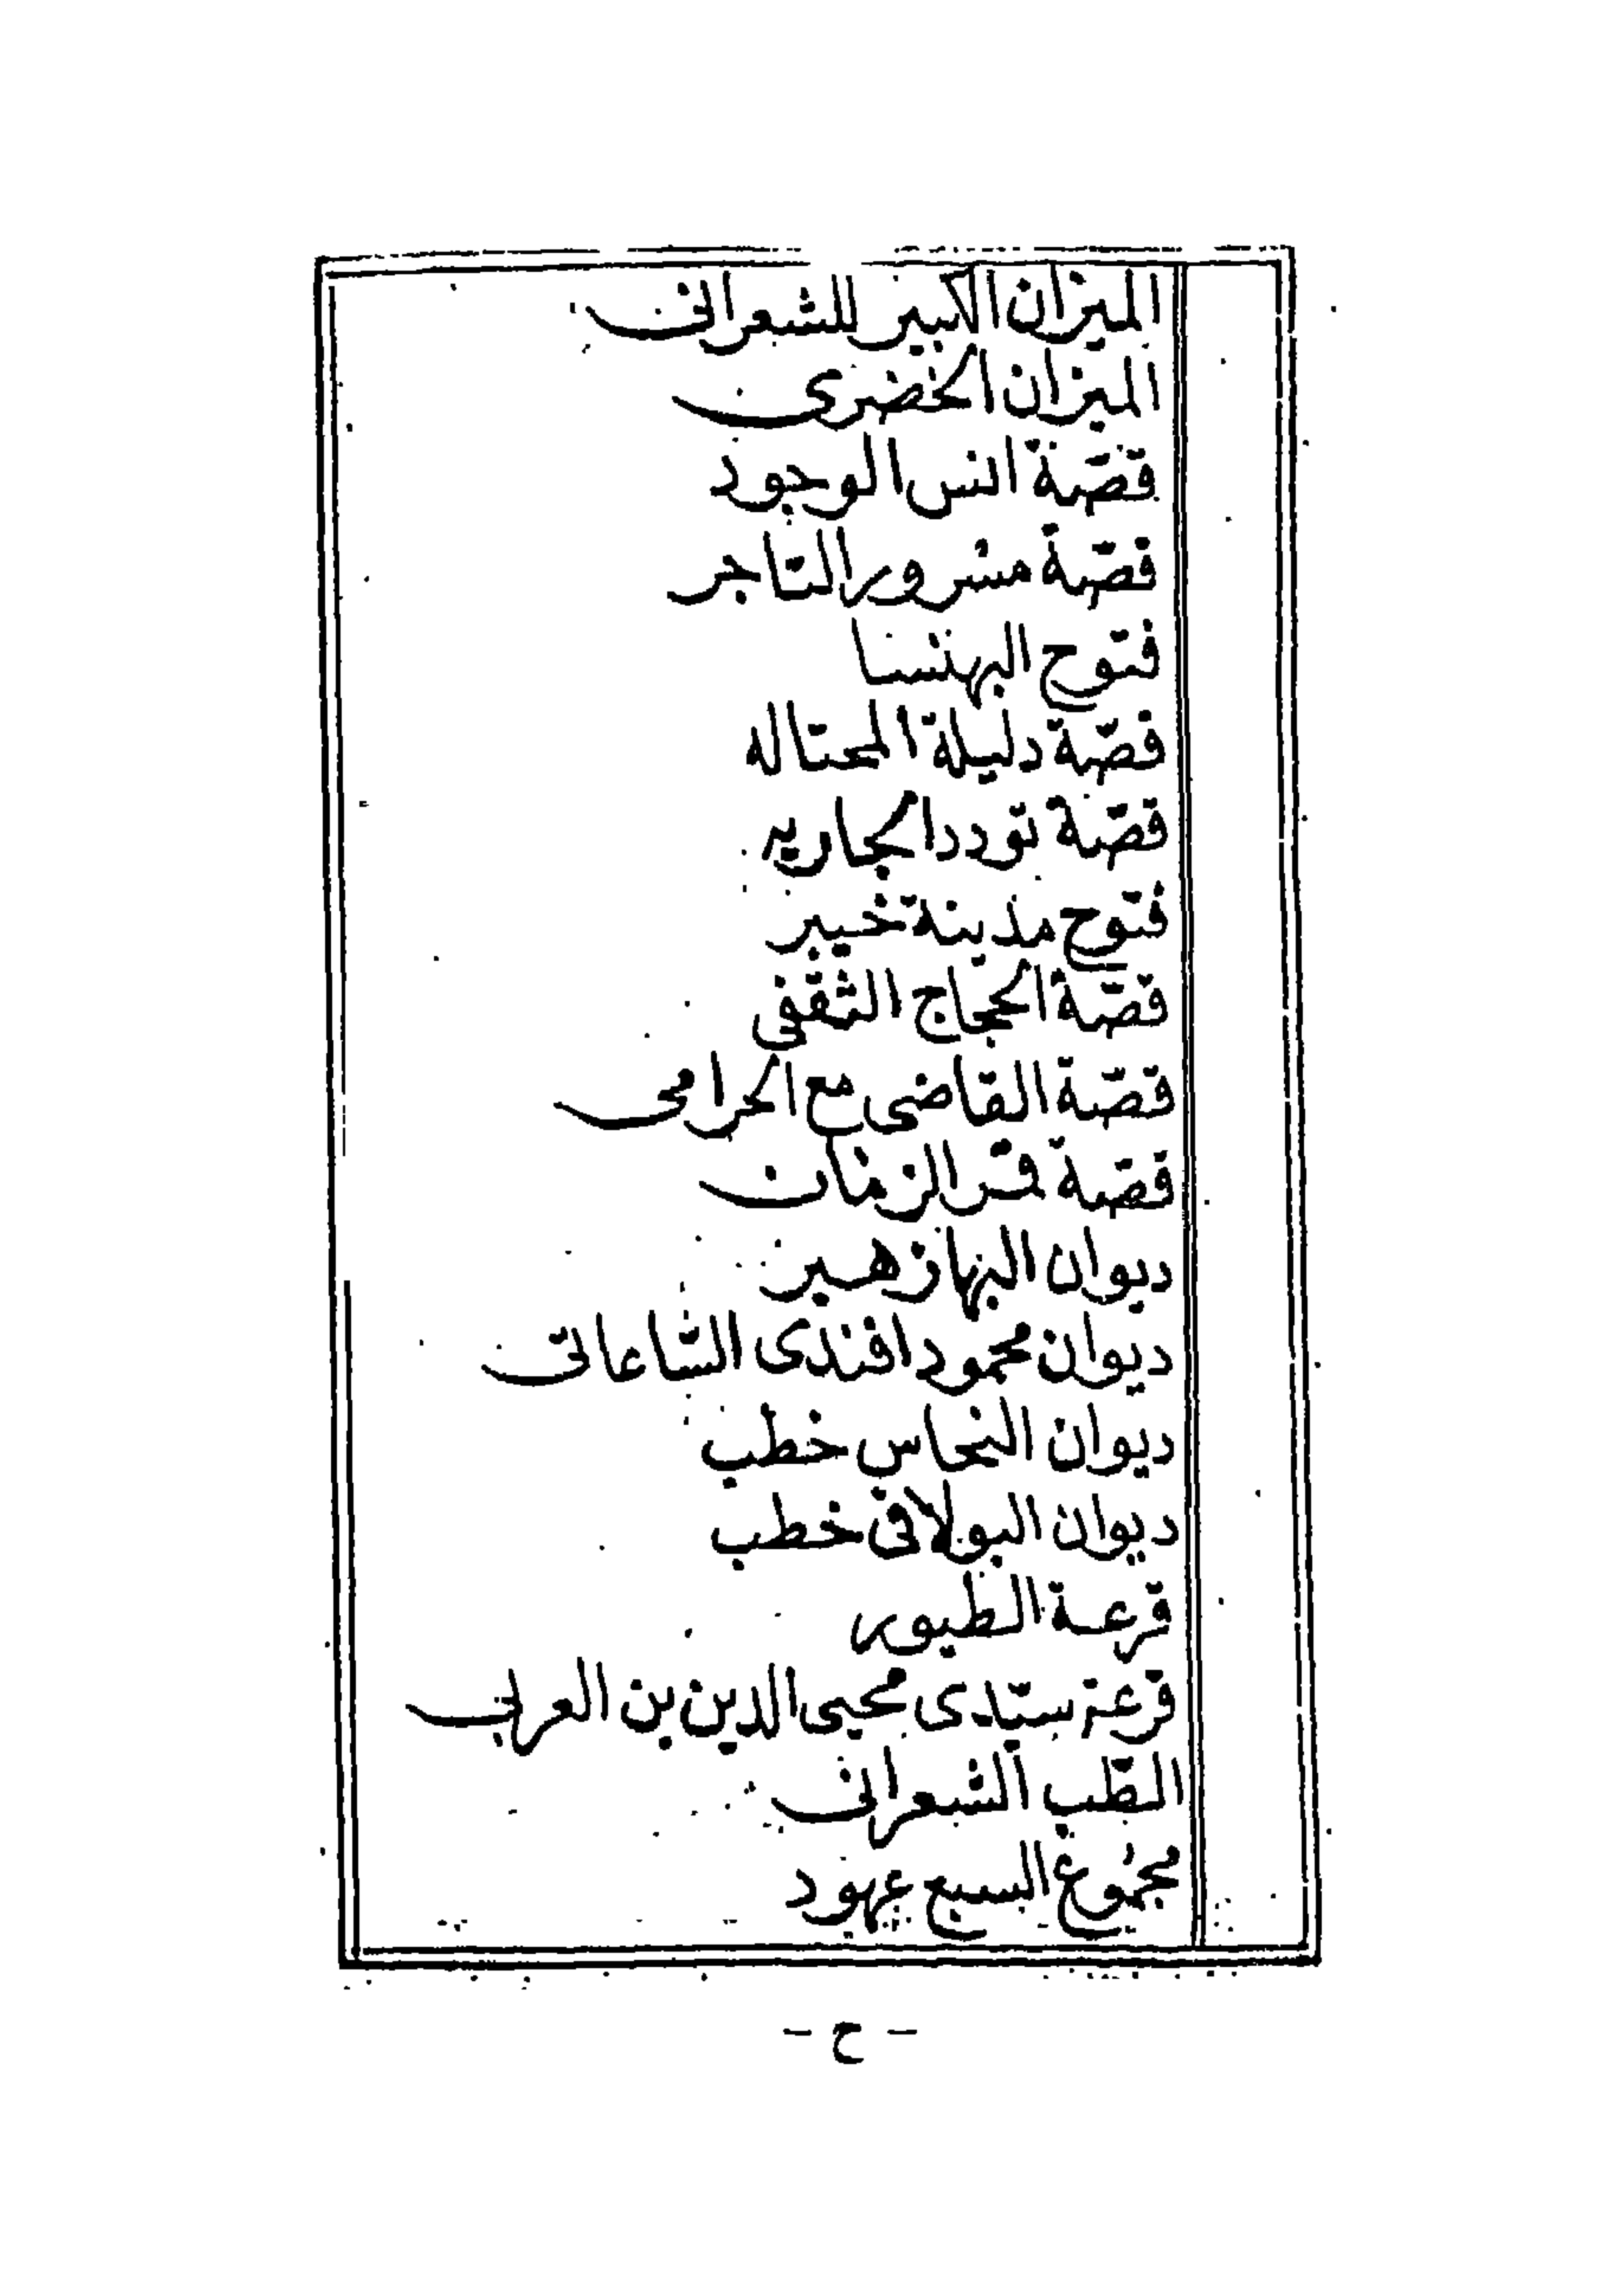 الميزان الكبير للشعرانى
الميزان الخضرى
قصّة انس الوجود
قصّة مسرور التاجر
فتوح البهنسا
قصّة دليلة المحتاله
قصّة تودد الجاريه
فتوح مدينة خيبر
قصّة الحجاج الثقفى
قصّة القاضى مع الحرامى
قصّة قمر الزمان
ديوان البهازهير
ديوان محمود افندى السّاعاتى
ديوان النحاس خطب
ديوان البولاقى خطب
قرعة الطيور
قرعة سيّدى محيى الدين بن العربى
الطّب الشعرانى
مجموع السبع عهود
- ح -